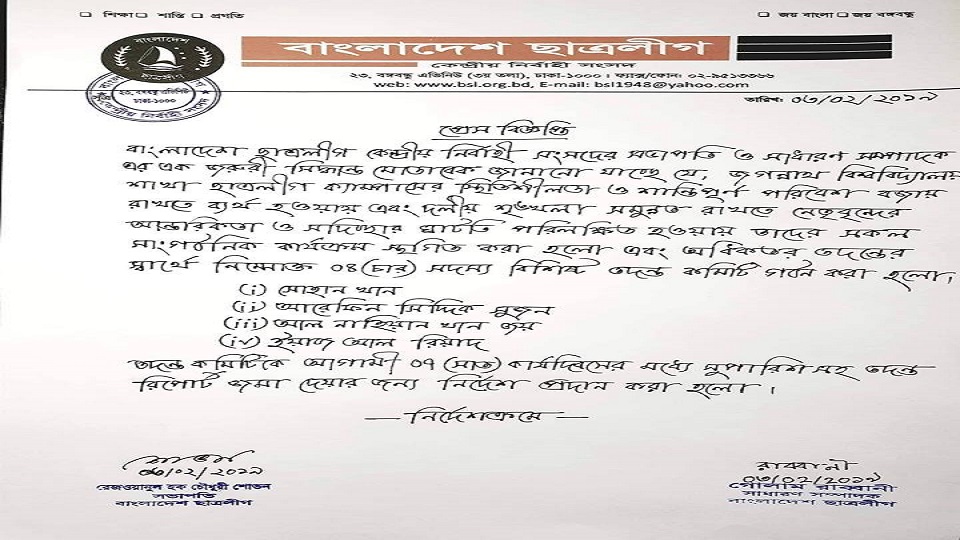 □ শিক্ষা □ শান্তি □ প্রগতি
□ জয় বাংলা □ জয় বঙ্গবন্ধু
বাংলাদেশ
ছাত্রলীগ
বাংলাদেশ ছাত্রলীগ
কেন্দ্রীয় নির্বাহী সংসদ
২৩, বঙ্গবন্ধু এভিনিউ (৩য় তলা), ঢাকা-১০০০ । ফ্যাক্স/ফোন: ০২-৯৫১৩৩৬৬
web: www.bsl.org.bd, E-mail: bsl1948@yahoo.com
২৩, বঙ্গবন্ধু এভিনিউ
ঢাকা-১০০০
কেন্দ্রীয় নির্বাহী সংসদ
তারিখ: ০৩/০২/২০১৯
প্রেস বিজ্ঞপ্তি
বাংলাদেশ ছাত্রলীগ কেন্দ্রীয় নির্বাহী সংসদের সভাপতি ও সাধারণ সম্পাদক
এর এক জরুরী সিদ্ধান্ত মোতাবেক জানানো যাচ্ছে যে, জগন্নাথ বিশ্ববিদ্যালয়
শাখা ছাত্রলীগ ক্যাম্পাসের স্থিতিশীলতা ও শান্তিপূর্ণ পরিবেশ বজায়
রাখতে ব্যর্থ হওয়ায় এবং দলীয় শৃঙ্খলা সমুন্নত রাখতে নেতৃবৃন্দের
আন্তরিকতা ও সদিচ্ছার ঘাটতি পরিলক্ষিত হওয়ায় তাদের সকল
সাংগঠনিক কার্যক্রম স্থগিত করা হলো এবং অধিকতর তদন্তের
স্বার্থে নিম্নোক্ত ০৪(চার) সদস্য বিশিষ্ট তদন্ত কমিটি গঠন করা হলো।
(i) সোহান খান
(ii) আরেফিন সিদ্দিক সুজন
(iii) আল নাহিয়ান খান জয়
(iv) ইয়াজ আল রিয়াদ
তদন্ত কমিটিকে আগামী ০৭ (সাত) কার্যদিবসের মধ্যে সুপারিশ সহ তদন্ত
রিপোর্ট জমা দেয়ার জন্য নির্দেশ প্রদান করা হলো।
— নির্দেশক্রমে —
০৩/০২/২০১৯
রেজওয়ানুল হক চৌধুরী শোভন
সভাপতি
বাংলাদেশ ছাত্রলীগ
রাব্বানী
০৩/০২/২০১৯
গোলাম রাব্বানী
সাধারণ সম্পাদক
বাংলাদেশ ছাত্রলীগ